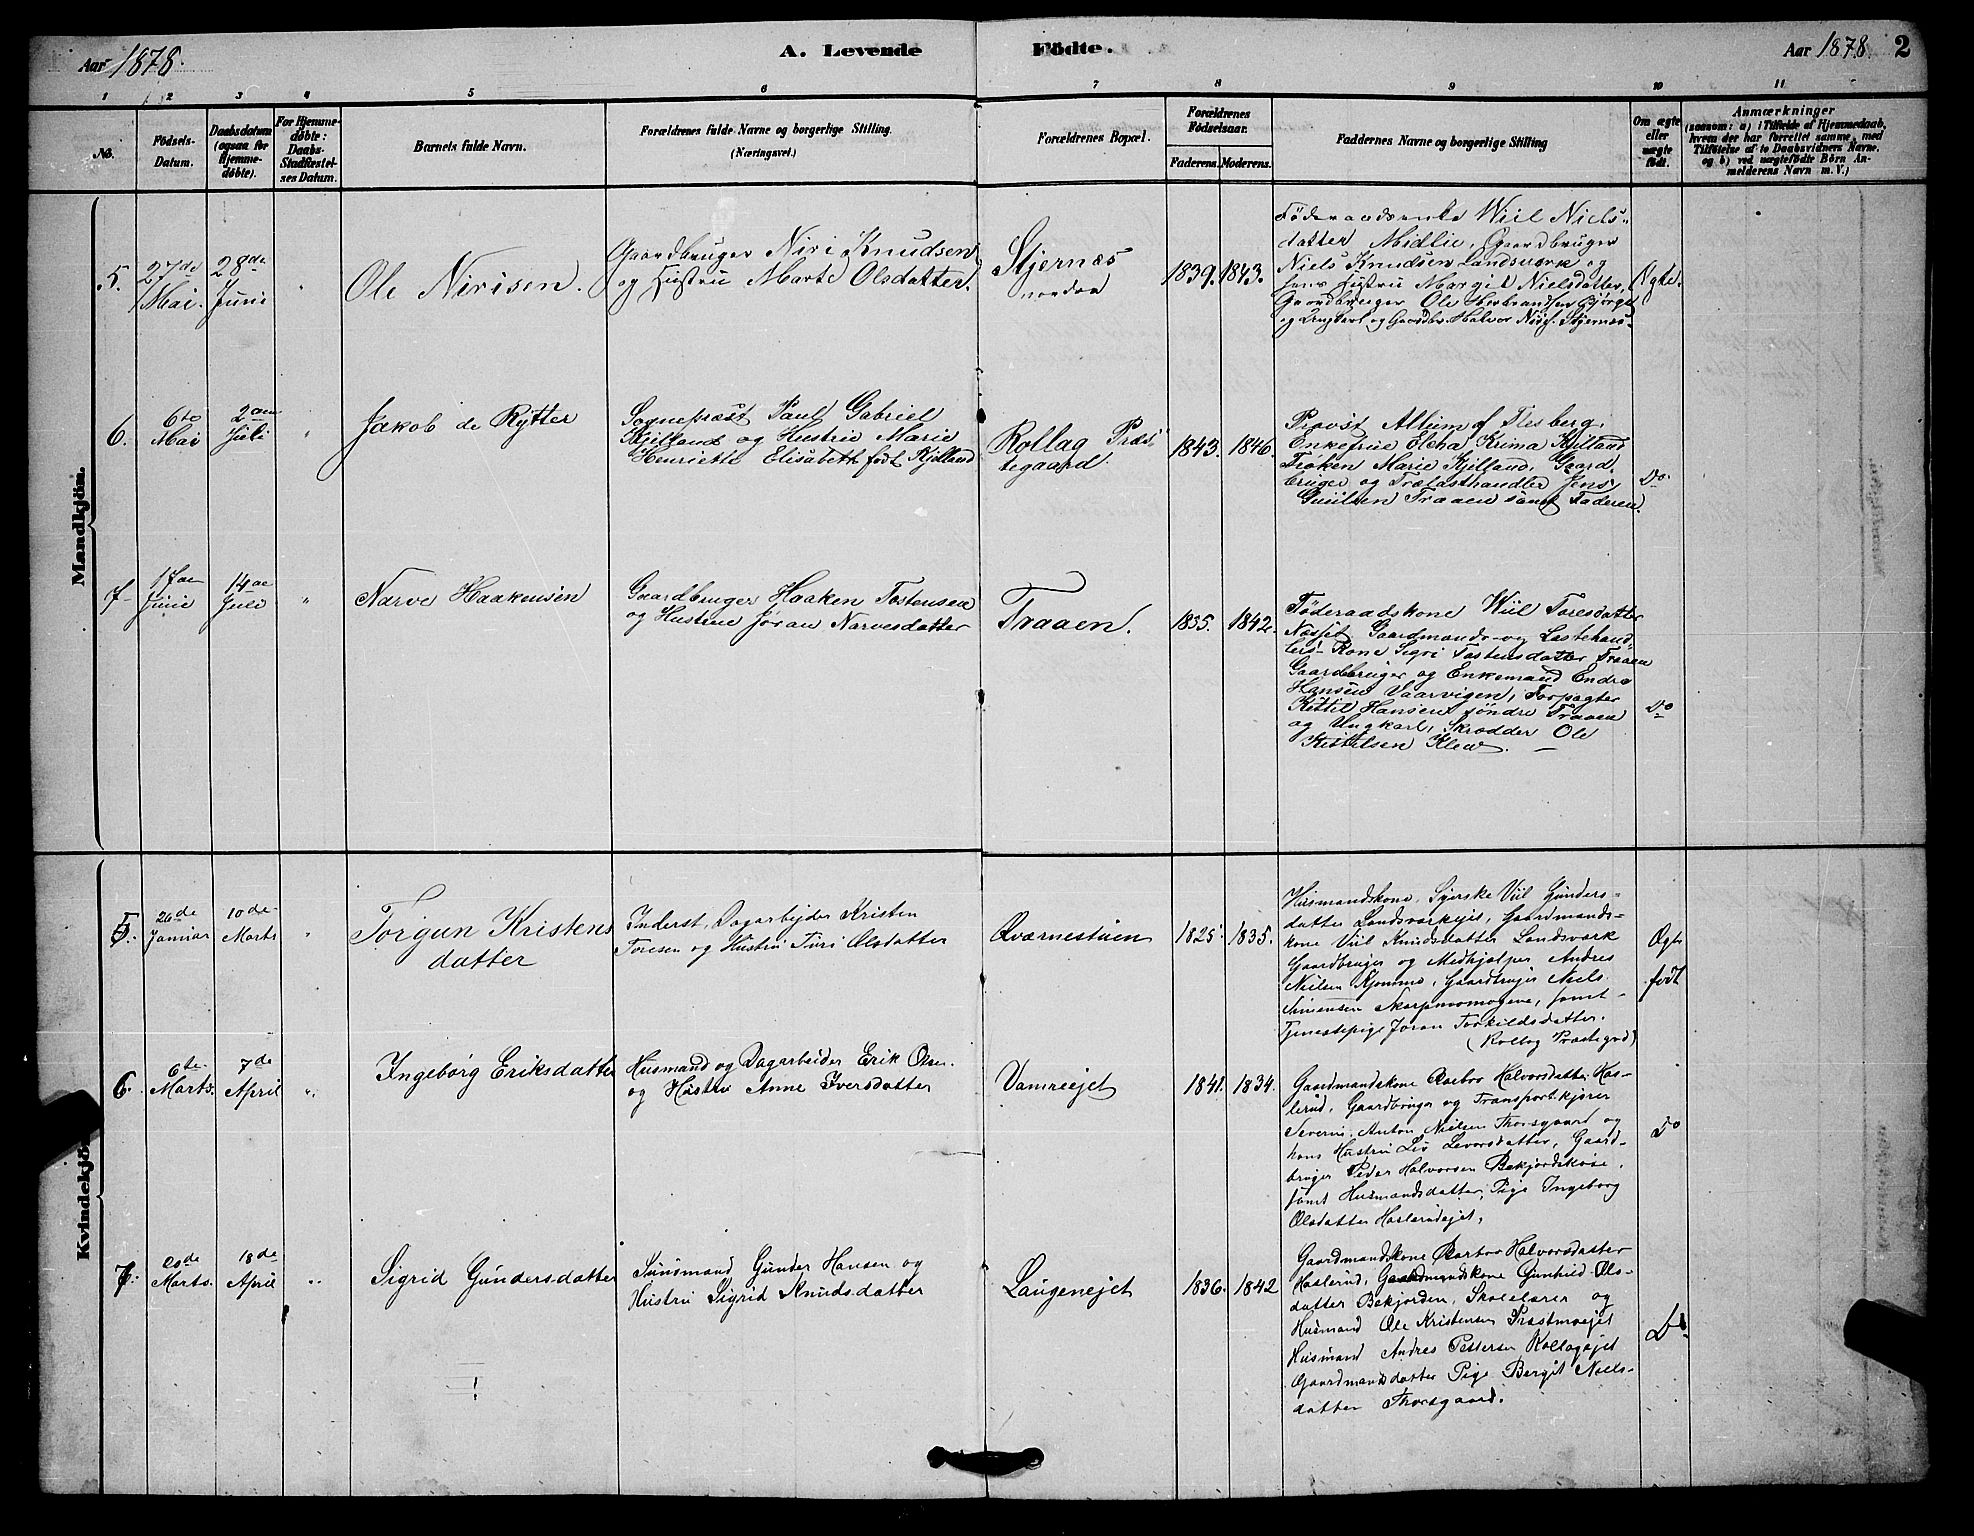 Aar 1878. A. Levende Födte. Aar 1878. 2
1 2 3 4 5 6 7 8 9 10 11
No.
Födsels-
Datum.
Daabsdatum
(ogsaa for
Hjemme-
döbte).
For Hjemme-
döbte:
Daabs-
Stadfæstel-
ses Datum.
Barnets fulde Navn.
Forældrenes fulde Navne og borgerlige Stilling.
(Næringsvei.)
Forældrenes Bopæl.
Forældrenes
Födselsaar.
Faderens. Moderens.
Faddernes Navne og borgerlige Stilling
Om ægte
eller
uægte
födt.
Anmærkninger
(saasom: a) i Tilfælde af Hjemmedaab,
hvem der har forrettet samme, med
Tilföielse af to Daabsvidners Navne,
og b) ved uægtefödte Börn An-
melderens Navn m. V.)
Mandkjön.
5. 27de
Mai.
28de
Juni
"
Ole Nirisen.
Gaardbruger Niri Knudsen
og Hustru Marte Olsdatter.
Stjernæs
nordaa
1839. 1843.
Föderaadsenke Wiil Niels-
datter Midlie, Gaardbruger
Niels Knudsen Landsværk og
hans Hustru Margit Nielsdatter,
Gaardbruger Ole Herbrandsen Bjørge
og Ungkarl og Gaardbr. Halvor Niris. Stjernæs.
Ægte.
6. 6te
Mai
2den
Juli
"
Jakob de Rytter
Sognepræst Paul Gabriel
Kjelland og Hustrue Marie
Henriette Elisabeth født Kjelland
Rollag Præs-
tegaard.
1843. 1846.
Provst Allum af Flesberg
Enkefrue Elcha Krima Kjelland
Frøken Marie Kjelland, Gaard-
bruger og Trælasthandler Jens
Guulsen Traaen samt Faderen.
Do.
7 17de
Juni
14de
Juli
"
Narve Haakensen
Gaardbruger Haaken Tostensen
og Hustrue Jøran Narvesdatter
Traaen.
1835. 1842.
Föderaadskone Wiil Toresdatter
Næsset, Gaardmands- og Lastehand-
lers- Kone Sigri Tostensdatter Traaen
Gaardbruger og Enkemand Endre
Hansen Vaarvigen, Forpagter
Kittil Hansen søndre Traaen
og Ungkarl, Skrædder Ole
Kittilsen Kleve. —
Do
Kvindekjö
5. 26de
Januar
10de
Marts
"
Torgun Kristens
datter
Inderst, Dagarbejder Kristen
Toresen og Hustru Turi Olsdatter
Qværnestuen
1825. 1835.
Husmandskone, Syerske Viil Gunders-
datter Landsværkejet, Gaardmands-
kone Viil Knudsdatter Landsværk
Gaardbruger og Medhjælper Andres
Nielsen Kjomme, Gaardbruger Niels
Simensen Skarpmomogene, samt
Tjenestepige Joran Torkildsdatter.
(Rollag Præstegrd)
Ægte
født
6. 6te
Marts.
7de
April
"
Ingeborg Eriksdatter
Husmand og Dagarbeider Erik Olsen
og Hustru Anne Iversdatter
Vamreejet
1841. 1834.
Gaardmandskone Aarbro Halvorsdatter Has-
lerud, Gaardbruger og Transportkjører
Severin Anton Nielsen Thorsgaard og
hans Hustru Liv Levorsdatter, Gaard-
bruger Peder Halvorsen Bekjordskose,
samt Husmandsdatter Pige Ingeborg
Olsdatter Haslerudejet.
Do
7. 20de
Marts.
18de
April
"
Sigrid Gundersdatter
Husmand Gunder Hansen og
Hustru Sigrid Knudsdatter
Laugenejet
1836. 1842
Gaardmandskone Aarbro Halvorsdatter
Haslerud, Gaardmandskone Gunhild Ols-
datter Bekjorden, Skolelærer og
Husmand Ole Kristensen Præstmoejet
Husmand Andres Pettersen Rollagejet
Gaardmandsdatter Pige Bergit Niels-
datter Thorsgaard.
Do